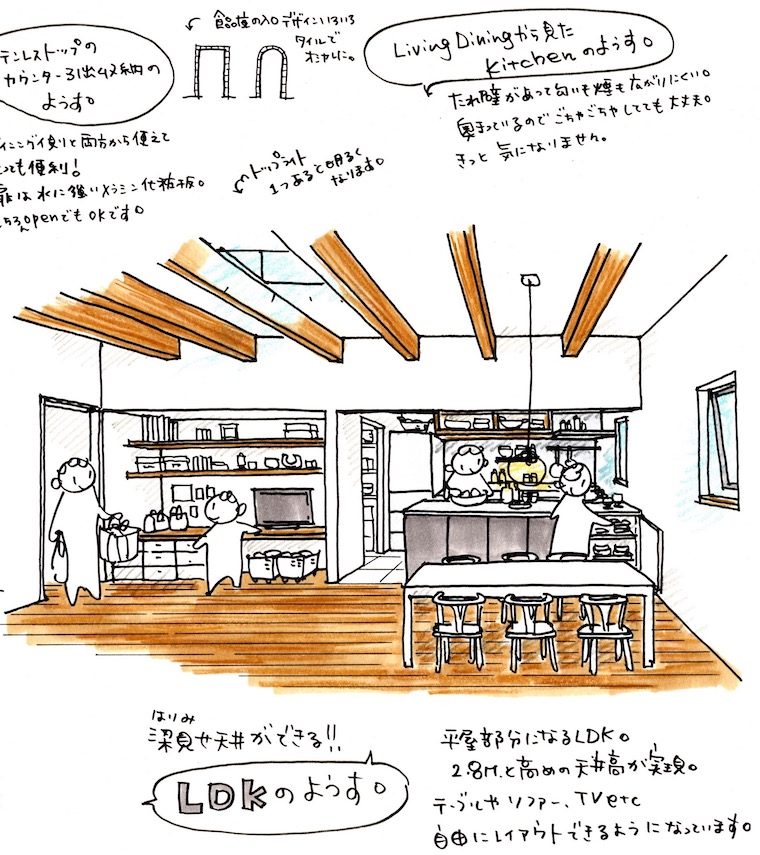 テンレストップの
カウンター引出収納の
ようす。
イニング側と両方から使えて
ても便利!
扉は水に強いメラミン化粧板。
ちろんopenでもOKです。
食品庫の入口デザインいろいろ
タイルで
トップライト
1つあると明るく
なります。
Living Diningから見た
Kitchenのようす。
たれ壁があって匂いも煙も広がりにくい。
奥まっているのでごちゃごちゃしてても大丈夫。
きっと気になりません。
はりみ
梁見せ天井ができる!!
LDKのようす。
平屋部分になるLDK。
2.8M.と高めの天井高が実現。
テーブルやソファー、TV etc
自由にレイアウトできるようになっています。